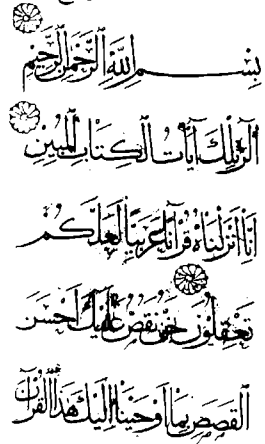 بِسْمِ اللَّهِ الرَّحْمَنِ الرَّحِيمِ
الرَ تِلْكَ آيَاتُ الْكِتَابِ الْمُبِينِ
إِنَّا أَنْزَلْنَاهُ قُرْآنًا عَرَبِيًّا لَعَلَّكُمْ
تَعْقِلُونَ نَحْنُ نَقُصُّ عَلَيْكَ أَحْسَنَ
الْقَصَصِ بِمَا أَوْحَيْنَا إِلَيْكَ هَذَا الْقُرْآنَ